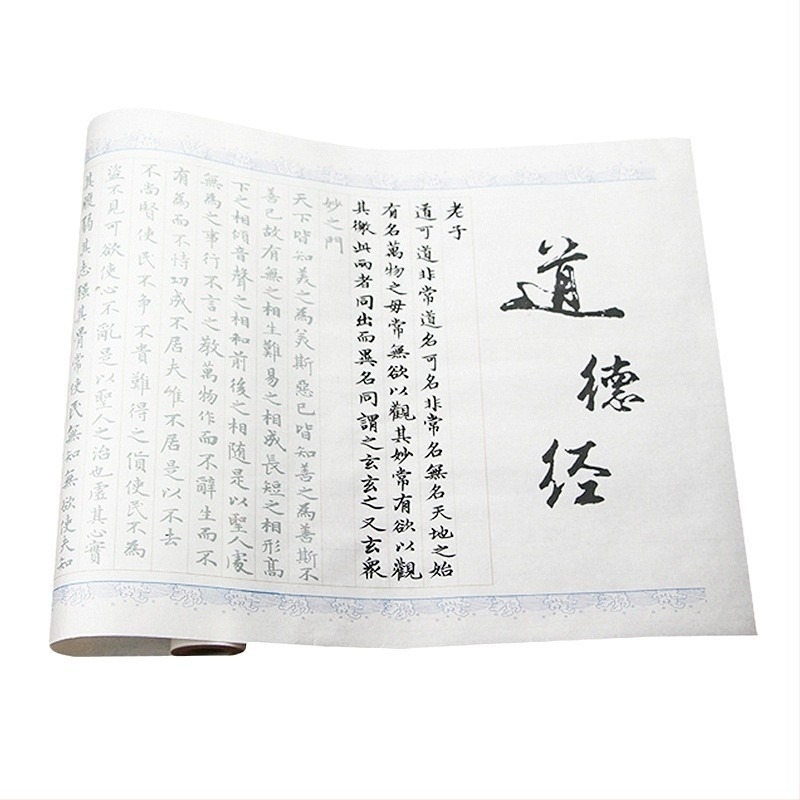 道德经
老子
道可道非常道名可名非常名無名天地之始
有名萬物之母常無欲以觀其妙常有欲以觀
其徼此两者同出而異名同謂之玄玄之又玄衆
妙之門
天下皆知美之為美斯惡已皆知善之為善斯不
善已故有無之相生難易之相成長短之相形高
下之相傾音聲之相和前後之相随是以聖人處
無為之事行不言之教萬物作而不辭生而不
有為而不恃功成不居夫唯不居是以不去
不尚賢使民不争不貴難得之貨使民不為
盜不見可欲使心不亂是以聖人之治也虛其心實
其腹弱其志强其骨常使民無知無欲使夫知